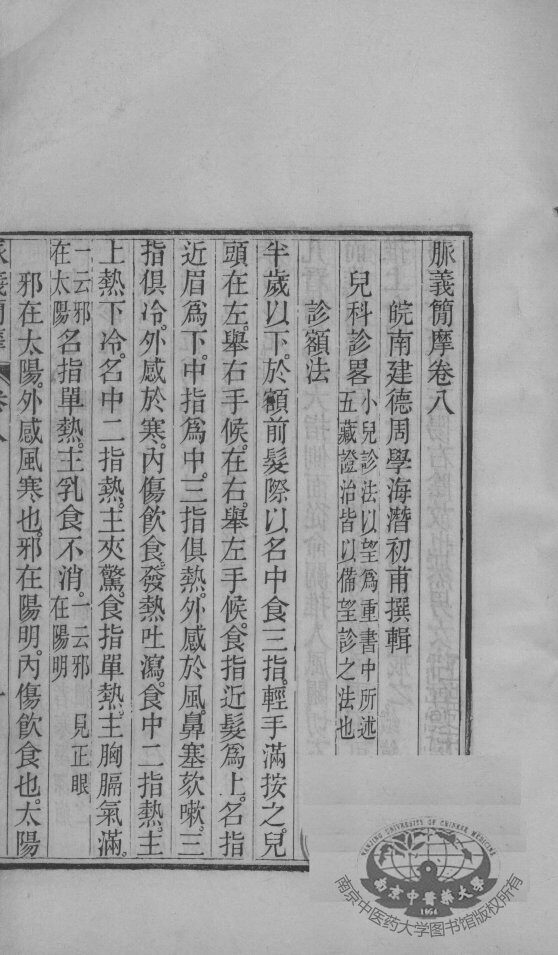 脈義簡摩卷八
皖南建德周學海潛初甫撰輯
兒科診畧小兒診法以望爲重書中所述五藏證治皆以備望診之法也
診額法
半歲以下。於額前髮際以名中食三指。輕手滿按之。兒
頭在左。舉右手候。在右。舉左手候。食指近髮爲上。名指
近眉爲下。中指爲中。三指俱熱。外感於風。鼻塞欬嗽。三
指俱冷。外感於寒。內傷飲食。發熱吐瀉。食中二指熱。主
上熱下冷。名中二指熱。主夾驚。食指單熱。主胸膈氣滿。
一云邪在太陽名指單熱。主乳食不消。一云邪在陽明見正眼
邪在太陽。外感風寒也。邪在陽明。內傷飲食也。太陽
脈義簡摩 卷八 一
NANJING UNIVERSITY OF CHINESE MEDICINE
南京中醫藥大學
1954
南京中医药大学图书馆版权所有